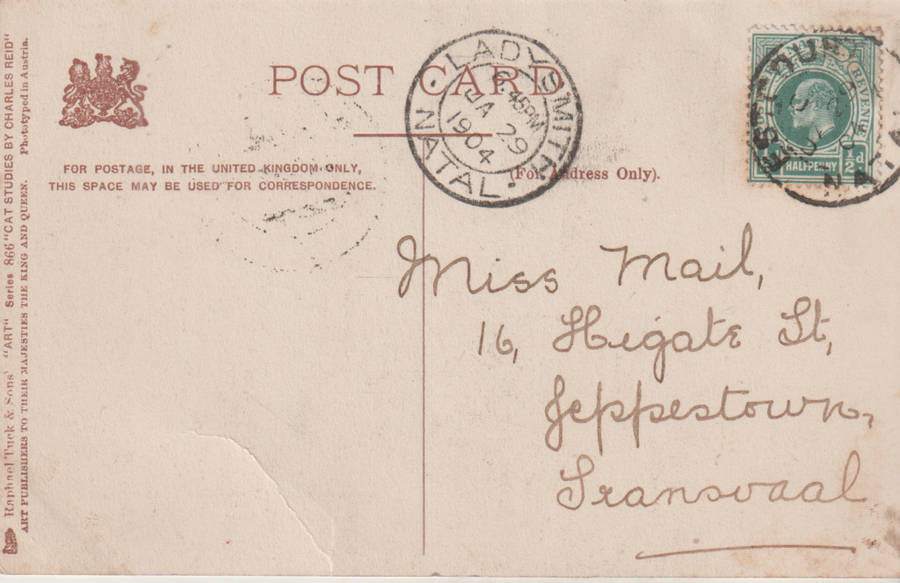 POST CARD.
FOR POSTAGE, IN THE UNITED KINGDOM ONLY,
THIS SPACE MAY BE USED FOR CORRESPONDENCE.
(For Address Only).
LADYSMITH
6.45PM
JA 29
1904
NATAL
REVENUE
HALFPENNY ½d
Miss Mail,
16, Higate St,
Jeppestown,
Transvaal
Raphael Tuck & Sons' "ART" Series 866 "CAT STUDIES BY CHARLES REID"
ART PUBLISHERS TO THEIR MAJESTIES THE KING AND QUEEN. Phototyped in Austria.